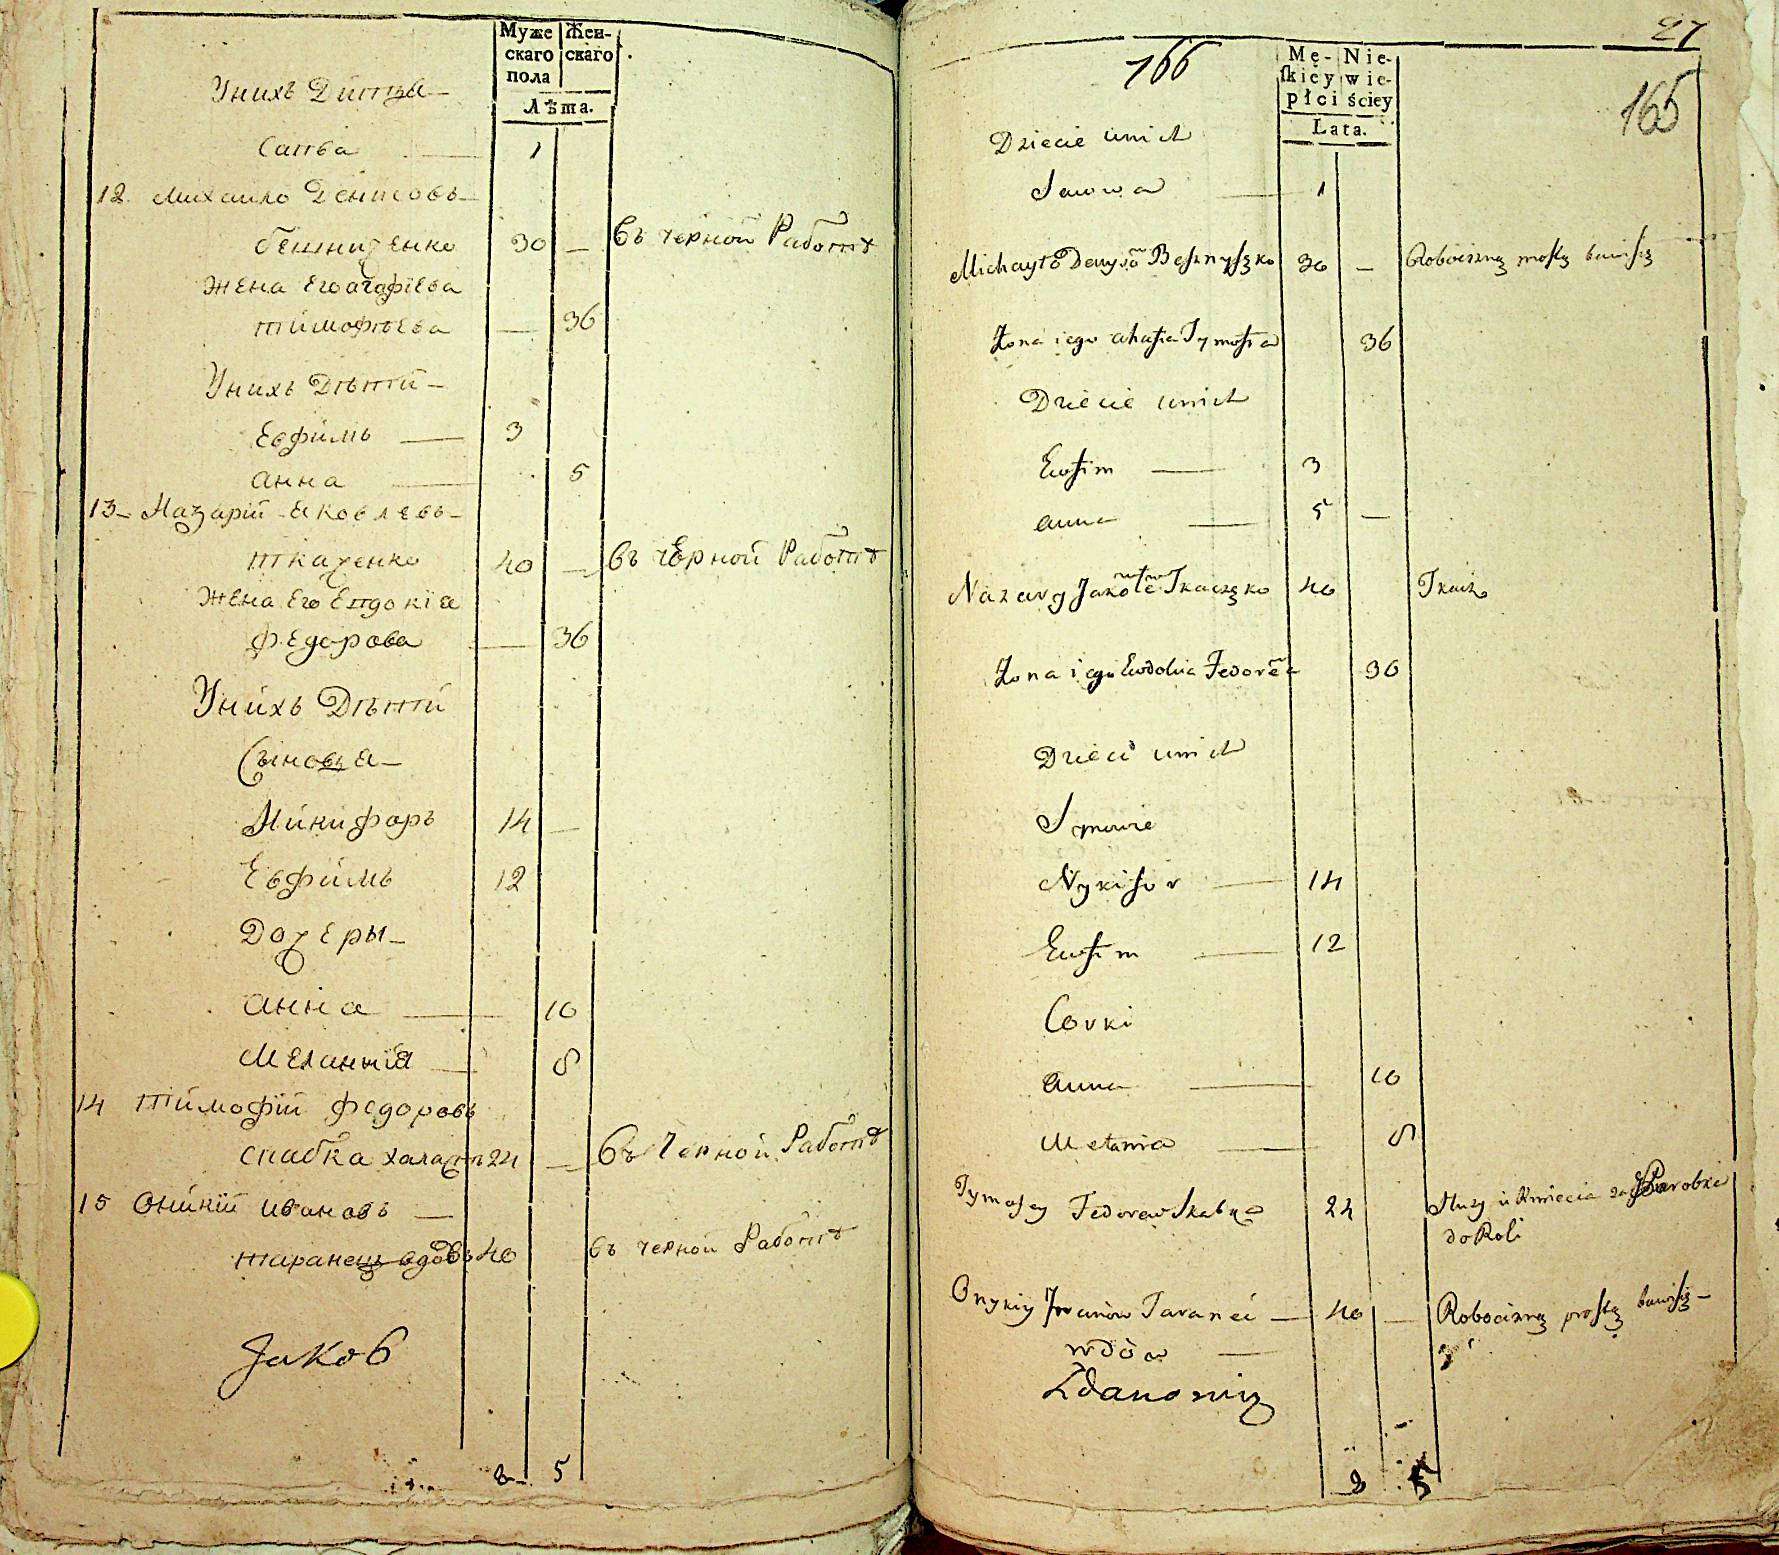 Муже
скаго
пола
Жен-
скаго
Лѣта.
Унихъ Дитя
Савва 1
12. Михаило Денисовъ
бешниченко 30 — въ черной Работѣ
Жена Его агафіева
тимофѣева — 36
Унихъ Дѣтти
Евфимъ — 3
анна — 5
13 Назарій яковлевъ
ткаченко 40 — въ чЕрной Работѣ
Жена Его Евдокіа
федорова — 36
Унихъ Дѣтти
Сыновья
Никифоръ 14 —
Евфимъ 12
Дочеры
анна — 10
Меланія — 8
14 Тимофій федоровъ
24 — въ Черной Работѣ
15 Оникій ивановъ —
таранец вдовъ 40 въ черной Работѣ
Jakob
8 5
27
166
165
Mę-
skiey
płci
Nie-
wie-
ściey
Lata.
Dziecie unich
Sawwa — 1
Michayło Denysów 30 — Robocizną prostą bawi się
Żona iego ahafia Tymofia 36
Dziecie unich
Ewfim — 3
anna — 5 —
Nazary Tkaczęko 40 Tkacz
Żona iego Ewdokia 36
Dzieci unich
Synowie
Nykifor — 14
Ewfim — 12
Corki
anna — 10
Melania — 8
Tymofey Fedorow Skabka 24 Służy u Kmiecia za Parobka
do Roli
Onykiy Iwanów Taranec — 40 — Robocizną prostą bawi się
wdów —
Zdanowicz
8 5